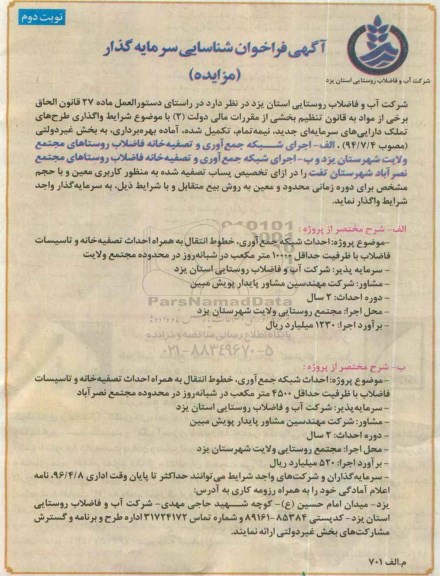 نوبت دوم
آگهی فراخوان شناسایی سرمایه گذار
(مزایده)
شرکت آب و فاضلاب روستایی استان یزد
شرکت آب و فاضلاب روستایی استان یزد در نظر دارد در راستای دستورالعمل ماده ۲۷ قانون الحاق
برخی از مواد به قانون تنظیم بخشی از مقررات مالی دولت (۲) با موضوع شرایط واگذاری طرح‌های
تملک دارایی‌های سرمایه‌ای جدید، نیمه‌تمام، تکمیل شده، آماده بهره‌برداری، به بخش غیردولتی
(مصوب ۹۴/۷/۴) ، الف- اجرای شبکه جمع‌آوری و تصفیه‌خانه فاضلاب روستاهای مجتمع
ولایت شهرستان یزد و ب- اجرای شبکه جمع‌آوری و تصفیه‌خانه فاضلاب روستاهای مجتمع
نصرآباد شهرستان تفت را در ازای تخصیص پساب تصفیه شده به منظور کاربری معین و با حجم
مشخص برای دوره زمانی محدود و معین به روش بیع متقابل و با شرایط ذیل، به سرمایه‌گذار واجد
شرایط واگذار نماید.
الف- شرح مختصر از پروژه :
-موضوع پروژه: احداث شبکه جمع آوری، خطوط انتقال به همراه احداث تصفیه‌خانه و تاسیسات
فاضلاب با ظرفیت حداقل ۱۰۰۰۰ متر مکعب در شبانه‌روز در محدوده مجتمع ولایت
- سرمایه پذیر: شرکت آب و فاضلاب روستایی استان یزد
- مشاور: شرکت مهندسین مشاور پایدار پویش مبین
- دوره احداث: ۲ سال
- محل اجرا: مجتمع روستایی ولایت شهرستان یزد
- برآورد اجرا: ۱۲۳۰ میلیارد ریال
ParsNamadData
پایگاه اطلاع رسانی مناقصه و مزایده
۰۲۱-۸۸۳۴۹۶۷۰-۵
ب- شرح مختصر از پروژه :
-موضوع پروژه: احداث شبکه جمع‌آوری، خطوط انتقال به همراه احداث تصفیه‌خانه و تاسیسات
فاضلاب با ظرفیت حداقل ۴۵۰۰ متر مکعب در شبانه‌روز در محدوده مجتمع نصرآباد
- سرمایه‌پذیر: شرکت آب و فاضلاب روستایی استان یزد
- مشاور: شرکت مهندسین مشاور پایدار پویش مبین
- دوره احداث: ۲ سال
- محل اجرا: مجتمع روستایی ولایت شهرستان یزد
- برآورد اجرا: ۵۲۰ میلیارد ریال
- سرمایه‌گذاران و شرکت‌های واجد شرایط می‌توانند حداکثر تا پایان وقت اداری ۹۶/۴/۸، نامه
اعلام آمادگی خود را به همراه رزومه کاری به آدرس:
یزد- میدان امام حسین (ع)- کوچه شهید حاجی مهدی- شرکت آب و فاضلاب روستایی
استان یزد - کدپستی ۸۵۳۸۴-۸۹۱۶۱ و شماره تماس ۳۱۷۲۴۱۷۲ اداره طرح و برنامه و گسترش
مشارکت‌های بخش غیردولتی ارائه نمایند.
م.الف ۷۰۱